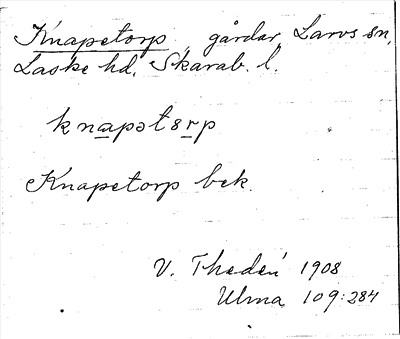 Knapetorp, gårdar, Larvs sn,
Laske hd, Skarab. l.
knapetorp
Knapetorp bek.
V. Thedén 1908
Ulma 109:284